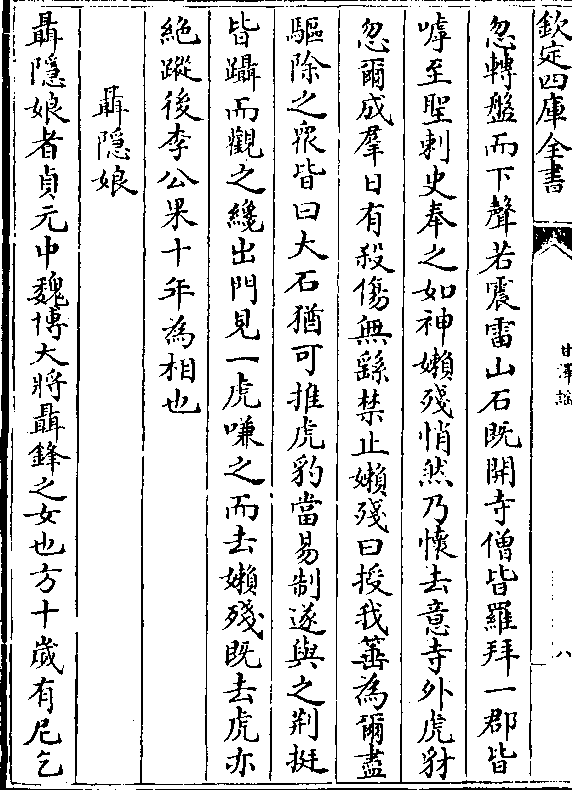 欽定四庫全書
甘澤謠
八
忽轉盤而下聲若震雷山石既開寺僧皆羅拜一郡皆
嘑至聖刺史奉之如神嬾殘悄然乃懷去意寺外虎豺
忽爾成羣日有殺傷無繇禁止嬾殘曰授我箠為爾盡
驅除之衆皆曰大石猶可推虎豹當易制遂與之荆挺
皆躡而觀之纔出門見一虎嗛之而去嬾殘既去虎亦
絶蹤後李公果十年為相也
聶隱娘
聶隱娘者貞元中魏博大將聶鋒之女也方十歲有尼乞